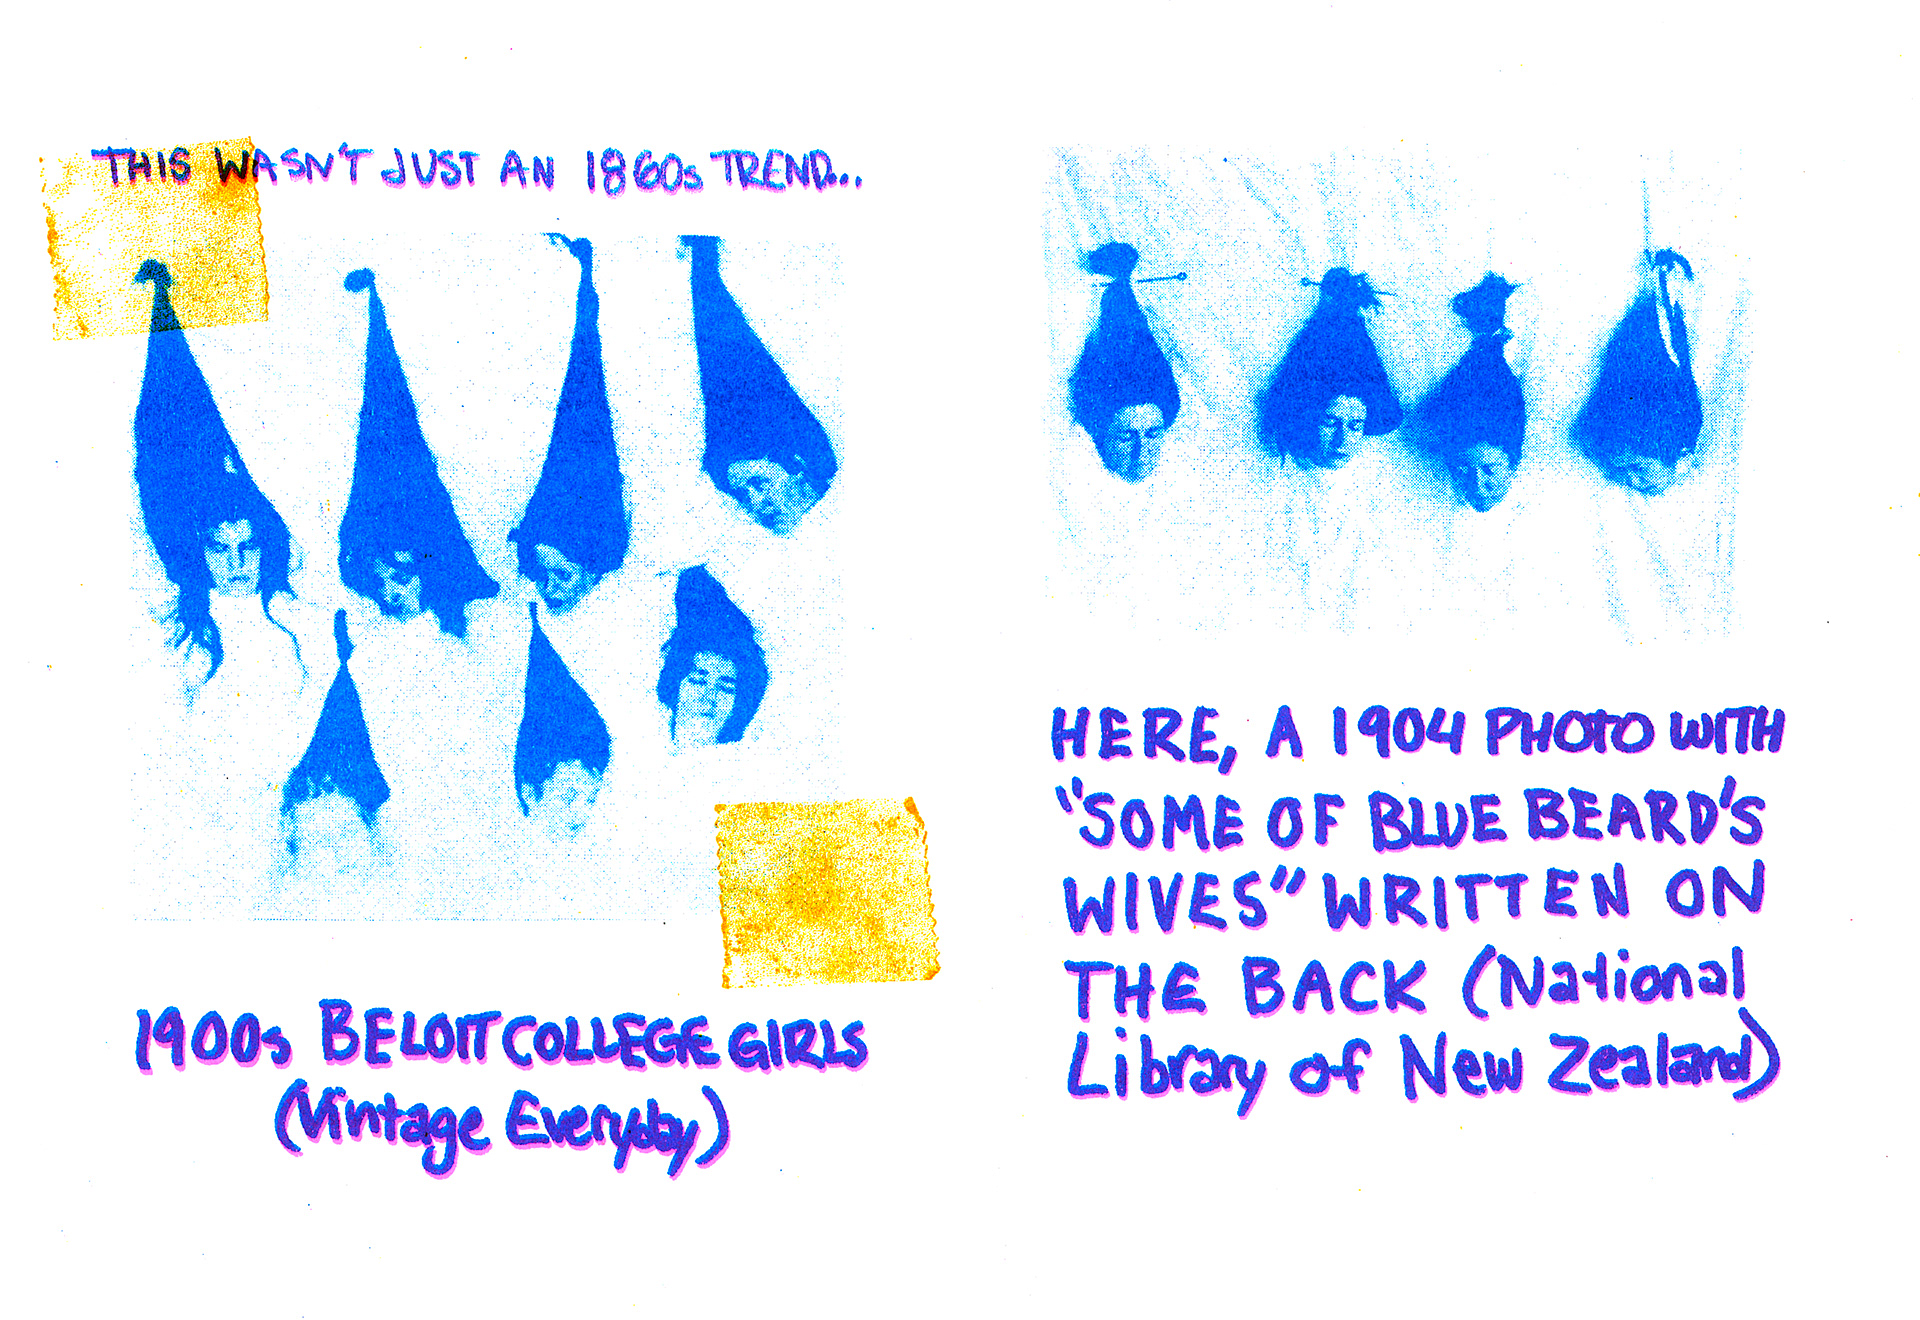 THIS WASN'T JUST AN 1860s TREND...
1900s BELOIT COLLEGE GIRLS
(Vintage Everyday)
HERE, A 1904 PHOTO WITH
"SOME OF BLUE BEARD'S
WIVES" WRITTEN ON
THE BACK (National
Library of New Zealand)